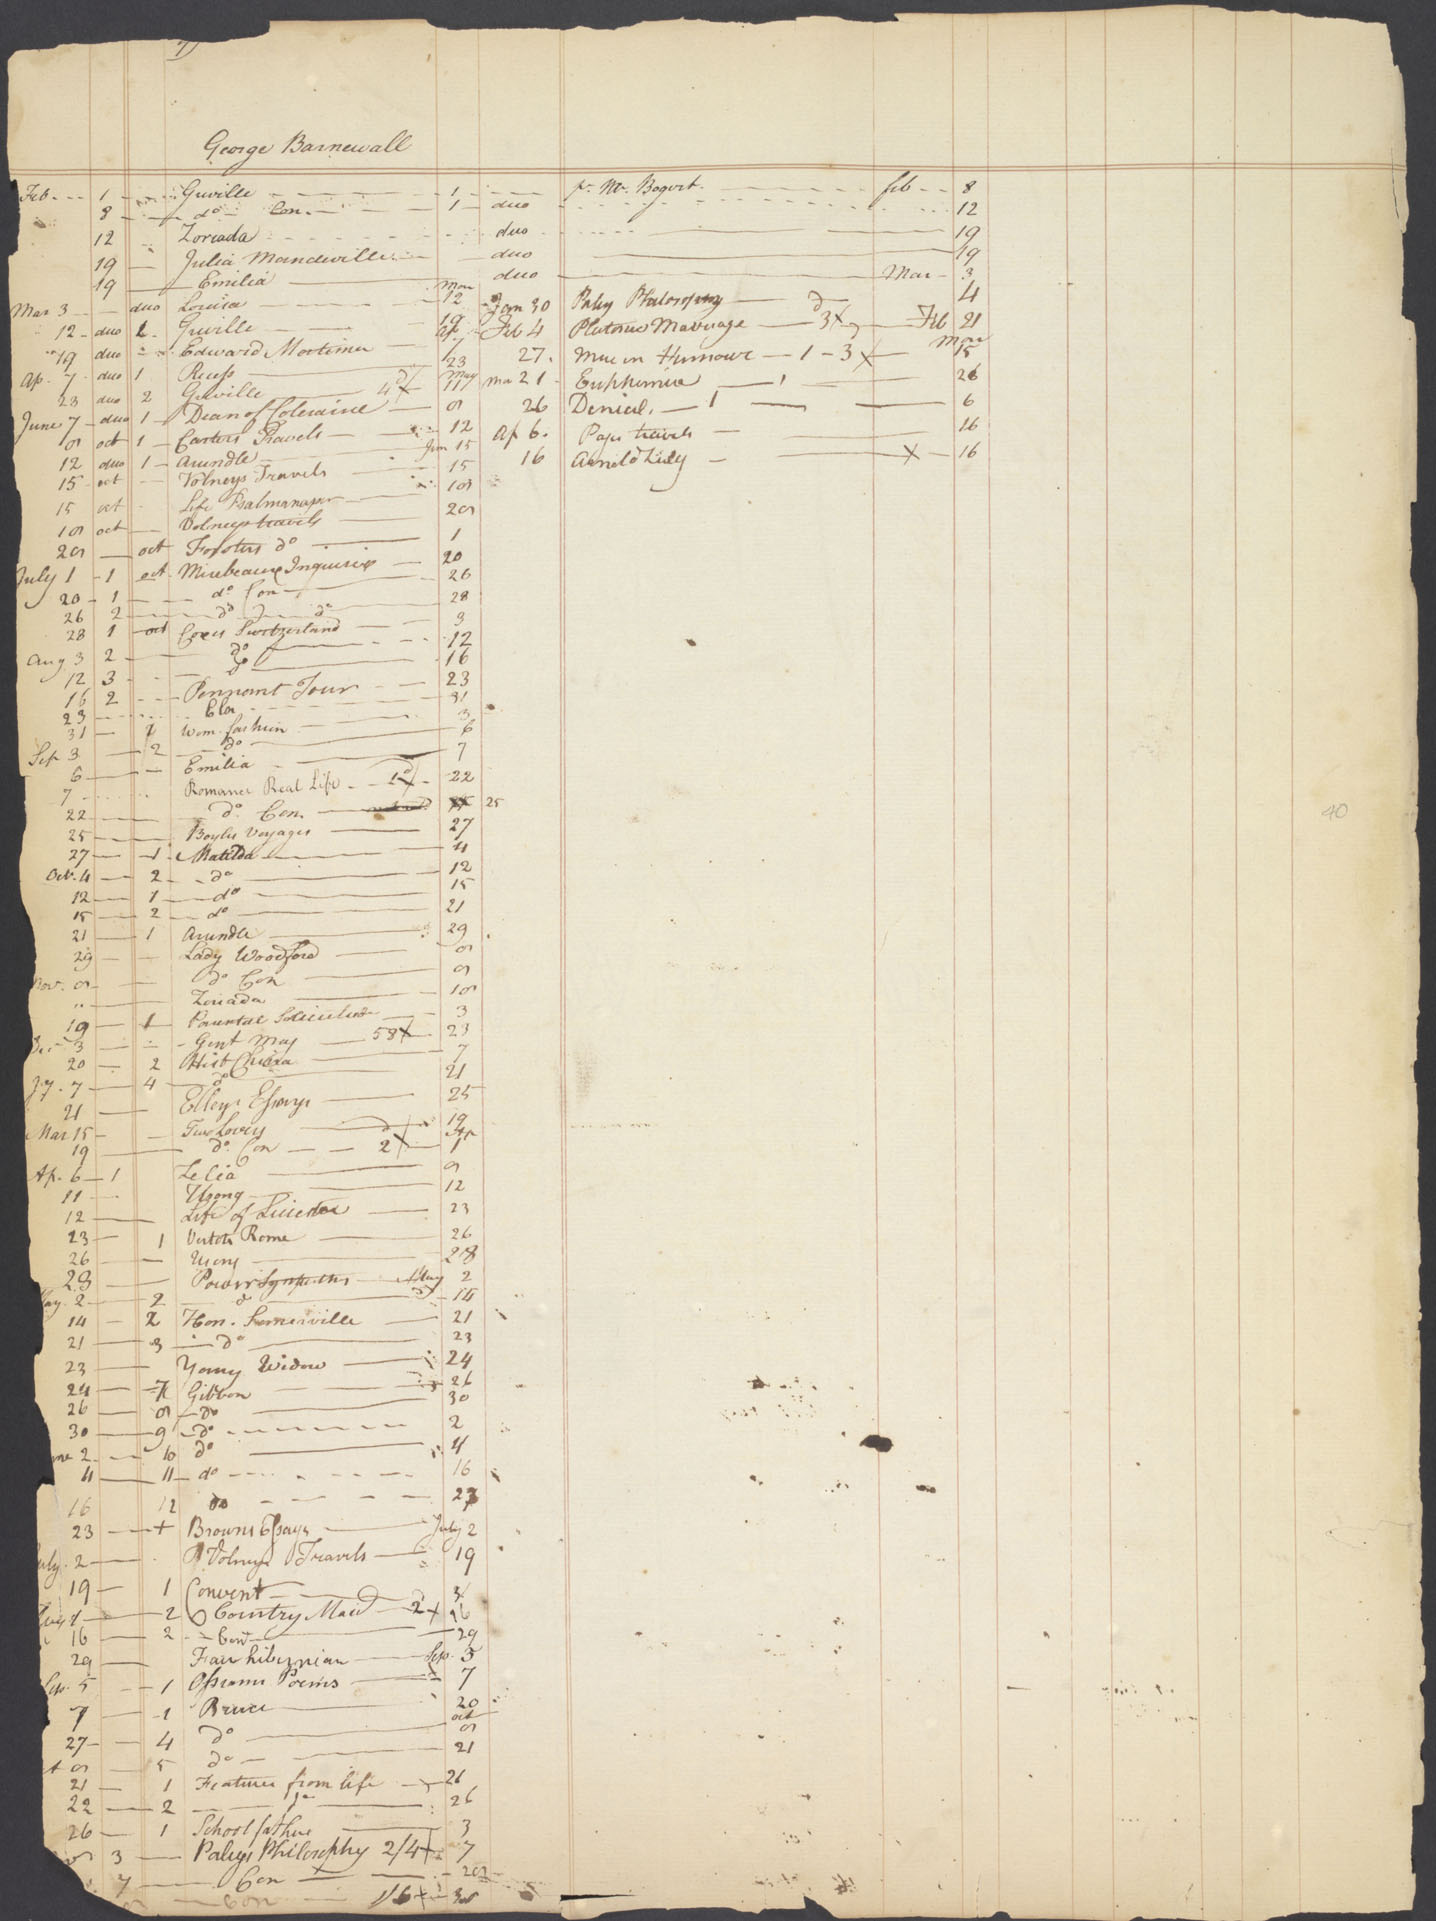 George Barnewall
Feb 1 Greville 1
8 do Con. 1
12 Zoriada duo
19 Julia Mandeville duo
19 Emilia duo
Mar 3 duo Louisa Mar 12
12 duo 2 Greville 19
19 duo Edward Mortimer Ap. 7
Ap. 7 duo 1 Recess 23
23 duo 2 Greville May 11
June 7 duo 1 Dean of Coleraine 9
9 oct 1 Carters Travels 12
12 duo 1 Arundle Jun 15
15 oct Volneys Travels 15
15 oct Life Psalmanazar 19
19 oct Volneys travels 29
29 oct Forsters do 1
July 1 1 oct Mirabeaux Inquiries 20
20 1 do Con 26
26 2 do do 28
28 1 oct Coxes Switzerland 3
Aug 3 2 do 12
12 3 do 16
16 2 Pennant Tour 23
23 Ela 31
31 1 Wom. fashion 3
Sep 3 2 do 6
6 Emilia 7
7 Romance Real Life 22
22 do Con. 25
25 Boyles Voyages 27
27 1 Matilda 4
Oct. 4 2 do 12
12 1 do 15
15 2 do 21
21 1 Arundle 29
29 Lady Woodford 9
Nov. 9 do Con 9
" Zoriada 19
19 1 Parental Solicitude 3
3 Gent Mag 58 23
20 2 Hist China 7
Jy. 7 4 do 21
21 Elleys Essays 25
Mar 15 Two Lovers 19
19 do Con 2 Ap 1
Ap. 6 1 Zelia 9
11 Usong 12
12 Life of Leicester 23
23 1 Vertots Rome 26
26 Usong 28
28 Power Sympathy May 2
May. 2 2 do 14
14 2 Hon. Somerville 21
21 3 do 23
23 Young Widow 24
24 7 Gibbon 26
26 9 do 30
30 9 do 2
2 10 do 4
4 11 do 16
16 12 do 23
23 Browns Essays July 2
July 2 Volneys Travels 19
19 1 Convent 3
2 Country Maid 2 16
16 2 Con 29
29 Fair hibernian Sep. 5
Sep. 5 1 Ossians Poems 7
7 1 Bruce 20
27 4 do oct 9
9 5 do 21
21 1 Features from life 26
22 2 do 26
26 1 School father 3
3 Paleys Philosophy 2/4 7
7 Con
Con 1/6
pr. Mr. Bogert feb 8
12
19
19
Mar 3
Jan 30 Paley Philosophy 4
Feb 4 Platonic Marriage 3 Feb 21
27. Man in Humour 1 - 3 Mar 15
Ma 21 Euphemia 1 26
26 Denial. 1 6
Ap 6. Pages travels 16
16 Arnold Zulig 16
40